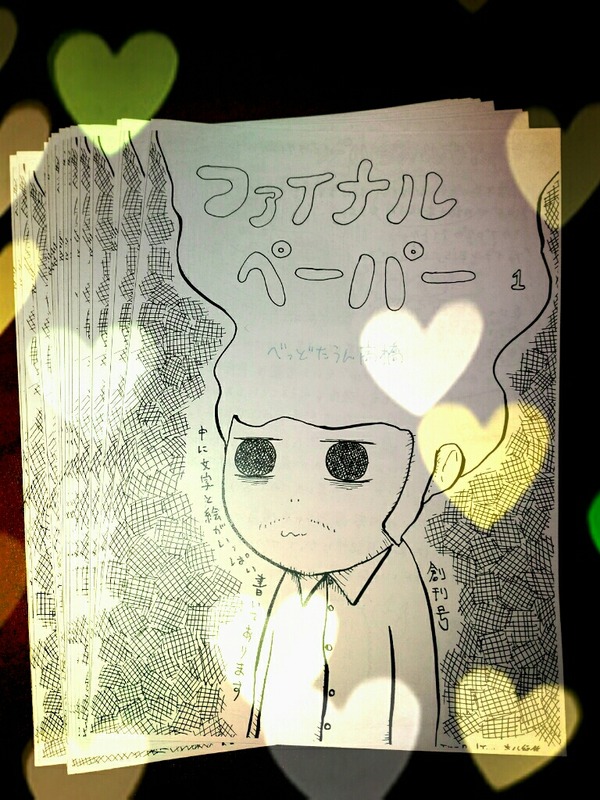 ファイナル
ペーパー 1
べっどたうん高橋
中に文字と絵がいっぱい書いてあります
創刊号